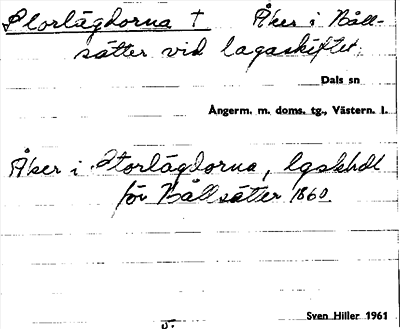 Storlägdorna † Åker i Båll-
sätter vid lagaskiftet.
Dals sn
Ångerm. m. doms. tg., Västern. l.
Åker i Storlägdorna, lgskhdl
för Bållsätter 1860.
Sven Hiller 1961
5.